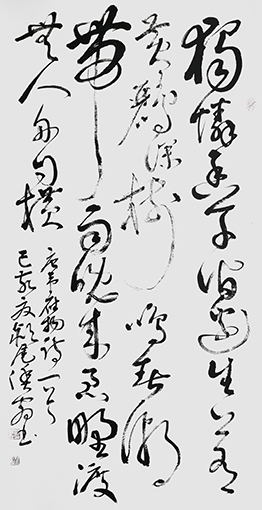 獨憐幽草澗邊生上有
黃鸝深樹鳴春潮
帶雨晚來急野渡
無人舟自橫
唐韋應物詩一首
己亥夏書